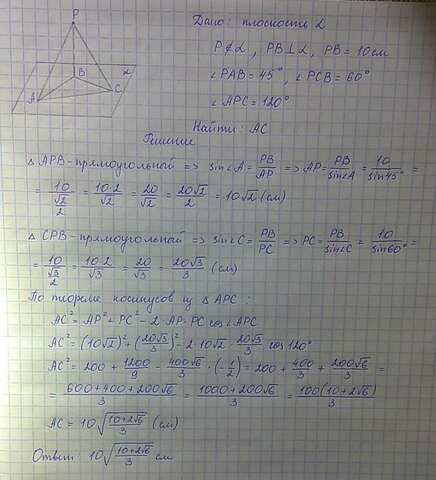 P
B
α
A
C
Дано: плоскость α
P∉α, PB⊥α, PB = 10см
∠PAB = 45°, ∠PCB = 60°
∠APC = 120°
Найти: AC
Решение
△ APB - прямоугольный => sin∠A = PB/AP => AP = PB/sin∠A = 10/sin45° =
= 10/(√2/2) = 10·2/√2 = 20/√2 = 20√2/2 = 10√2 (см)
△ CPB - прямоугольный => sin∠C = PB/PC => PC = PB/sin∠C = 10/sin60° =
= 10/(√3/2) = 10·2/√3 = 20/√3 = 20√3/3 (см)
По теореме косинусов из △ APC :
AC² = AP² + PC² - 2·AP·PC cos∠APC
AC² = (10√2)² + (20√3/3)² - 2·10√2·20√3/3 cos120°
AC² = 200 + 1200/9 - 400√6/3 · (-1/2) = 200 + 400/3 + 200√6/3 =
= (600+400+200√6)/3 = (1000+200√6)/3 = 100(10+2√6)/3
AC = 10√((10+2√6)/3) (см)
Ответ: 10√((10+2√6)/3) см